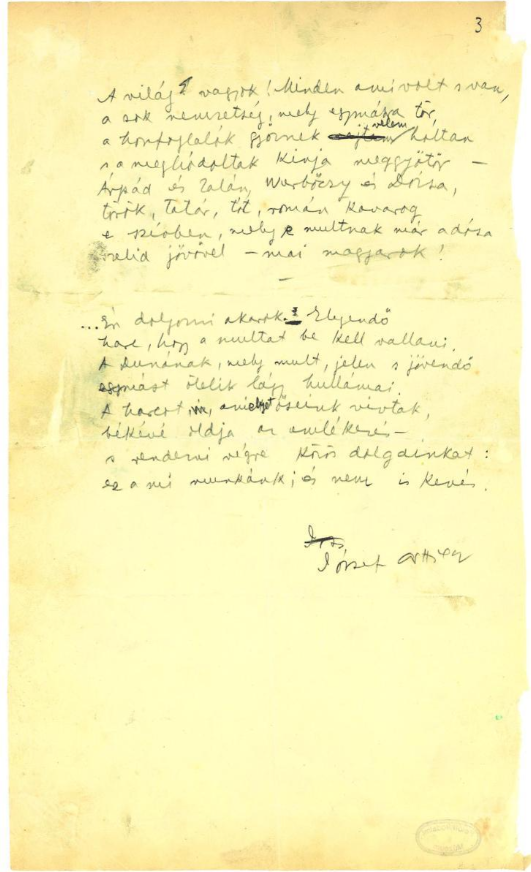 3
A világ vagyok! Minden ami volt s van,
a sok nemzetség, mely egymásra tör,
a honfoglalók győznek velem holtan
s a meghódoltak kinja meggyötör –
Árpád és Zalán, Werbőczy és Dózsa,
török, tatár, tót, román kavarog
e szívben, mely e multnak már adósa
szelid jövővel – mai magyarok!
–
...Én dolgozni akarok. Elegendő
harc, hogy a multat be kell vallani.
A Dunának, mely mult, jelen s jövendő
egymást ölelik lágy hullámai.
A harcot, amelyet őseink vivtak,
békévé oldja az emlékezés –
s rendezni végre közös dolgainkat:
ez a mi munkánk; és nem is kevés.
József Attila